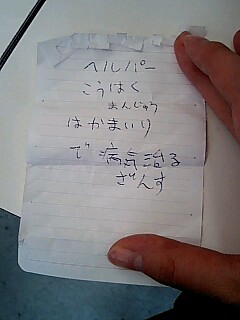 ヘルパー
こうはく
まんじゅう
はかまいり
で病気治る
ざんす